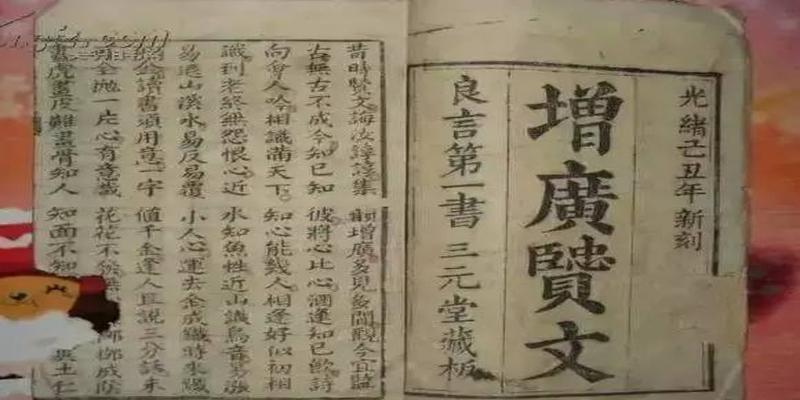 光緒己丑年新刻
增廣賢文
良言第一書 三元堂藏板
昔時賢文誨汝諄諄集 韻增廣多見多聞觀今宜鑑
古無古不成今知己知 彼將心比心酒逢知己飲詩
向會人吟相識滿天下 知心能幾人相逢好似初相
識到老終無怨恨心近 水知魚性近山識鳥音易漲
易退山溪水易反易覆 小人心運去金成鐵時來鐵
金讀書須用意一字 值千金逢人且說三分話未
全拋一片心有意栽 花花不發無 柳柳成陰
畫虎畫皮難畫骨知人 知面不知 土仁